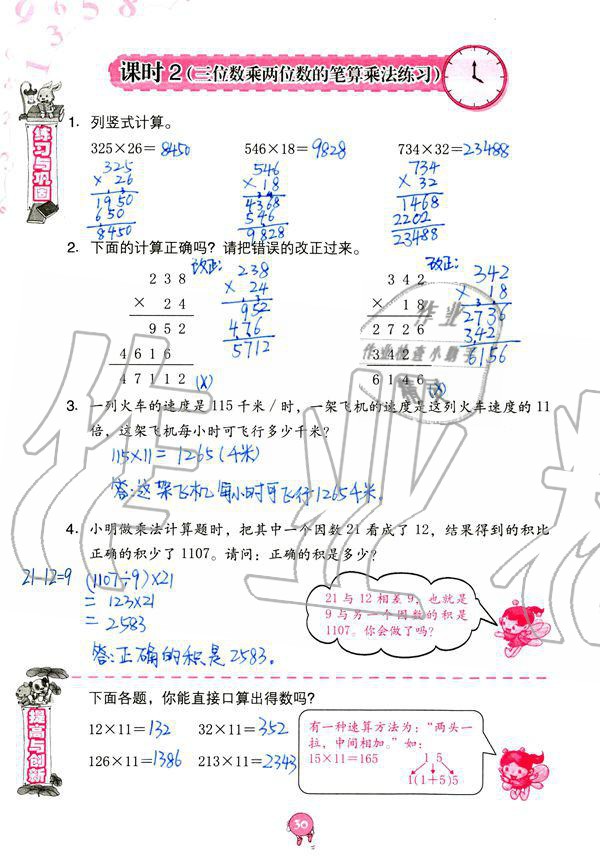 课时2（三位数乘两位数的笔算乘法练习）
练习与巩固
1. 列竖式计算。
325×26=8450 546×18=9828 734×32=23488
325 546 734
×26 ×18 ×32
1950 4368 1468
650 546 2202
8450 9828 23488
2. 下面的计算正确吗？请把错误的改正过来。
改正: 改正:
238 238 342 342
× 24 × 24 × 18 × 18
952 952 2726 2736
4616 476 342 342
47112 (×) 5712 6146 (×) 6156
3. 一列火车的速度是115千米/时，一架飞机的速度是这列火车速度的11
倍，这架飞机每小时可飞行多少千米？
115×11=1265(千米)
答:这架飞机每小时可飞行1265千米.
4. 小明做乘法计算题时，把其中一个因数21看成了12，结果得到的积比
正确的积少了1107。请问：正确的积是多少？
21-12=9 (1107÷9)×21
=123×21
=2583
答:正确的积是2583.
21与12相差9，也就是
9与另一个因数的积是
1107。你会做了吗？
提高与创新
下面各题，你能直接口算出得数吗？
12×11=132 32×11=352
126×11=1386 213×11=2343
有一种速算方法为：“两头一
拉，中间相加。”如：
15×11=165 1 5
1(1+5)5
30
作业
作业检查小助手